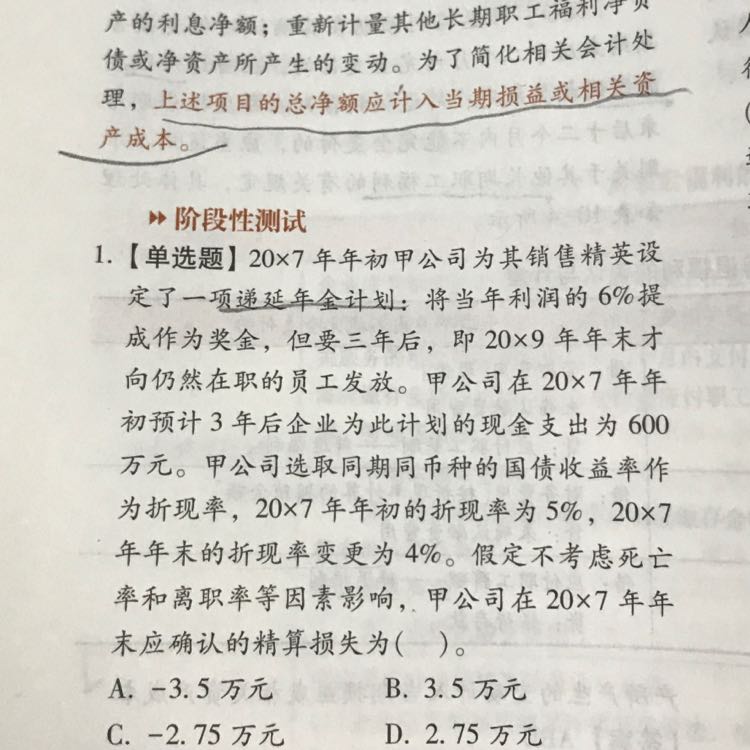 产的利息净额；重新计量其他长期职工福利净负
债或净资产所产生的变动。为了简化相关会计处
理，上述项目的总净额应计入当期损益或相关资
产成本。
阶段性测试
1.【单选题】20×7 年年初甲公司为其销售精英设
定了一项递延年金计划：将当年利润的 6%提
成作为奖金，但要三年后，即 20×9 年年末才
向仍然在职的员工发放。甲公司在 20×7 年年
初预计 3 年后企业为此计划的现金支出为 600
万元。甲公司选取同期同币种的国债收益率作
为折现率，20×7 年年初的折现率为 5%，20×7
年年末的折现率变更为 4%。假定不考虑死亡
率和离职率等因素影响，甲公司在 20×7 年年
末应确认的精算损失为(　)。
A. -3.5 万元　B. 3.5 万元
C. -2.75 万元　D. 2.75 万元